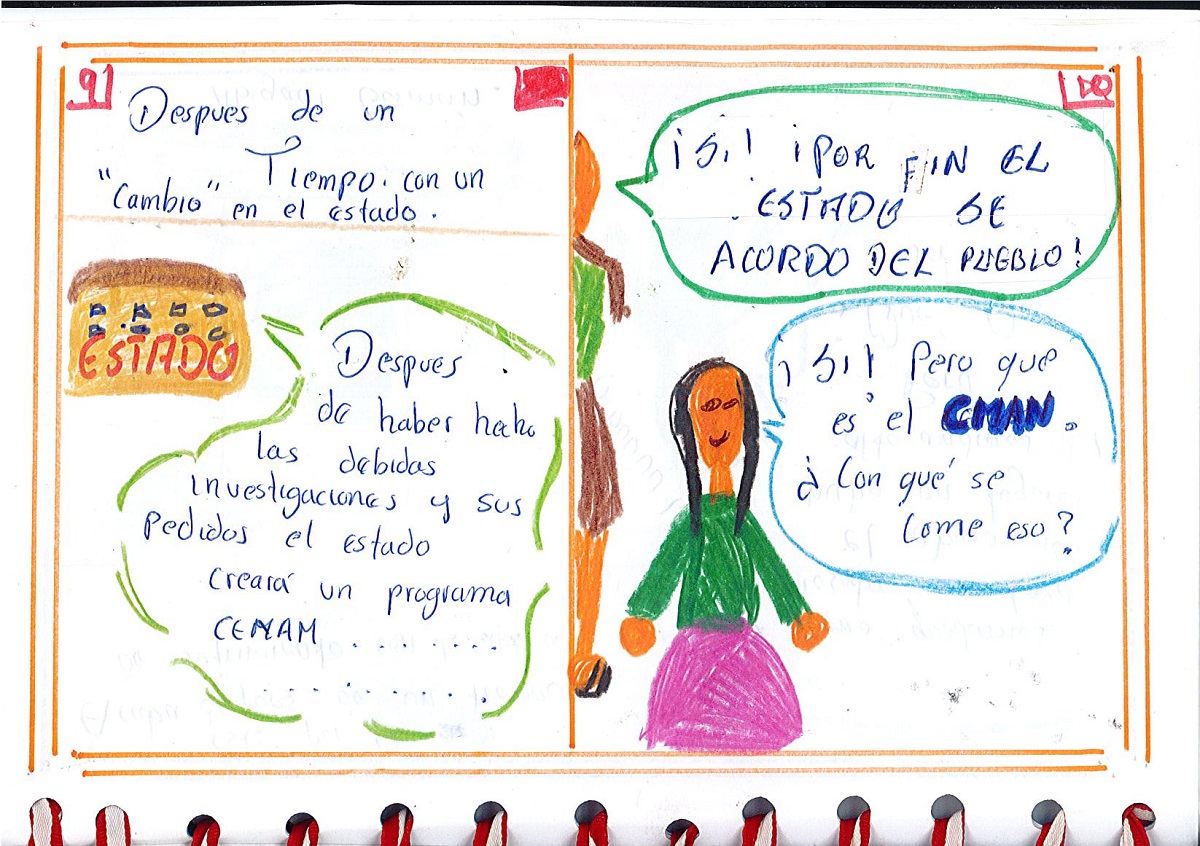 9
Despues de un
Tiempo. con un
"Cambio" en el Estado.
ESTADO
Despues
de haber hecho
las debidas
investigaciones y sus
Pedidos el estado
creará un programa
CEMAM . . . . . . .
. . . . . .
¡Si! ¡POR FIN EL
ESTADO SE
ACORDO DEL PUEBLO!
¡SI! Pero que
es el CMAN.
¿Con qué se
come eso?